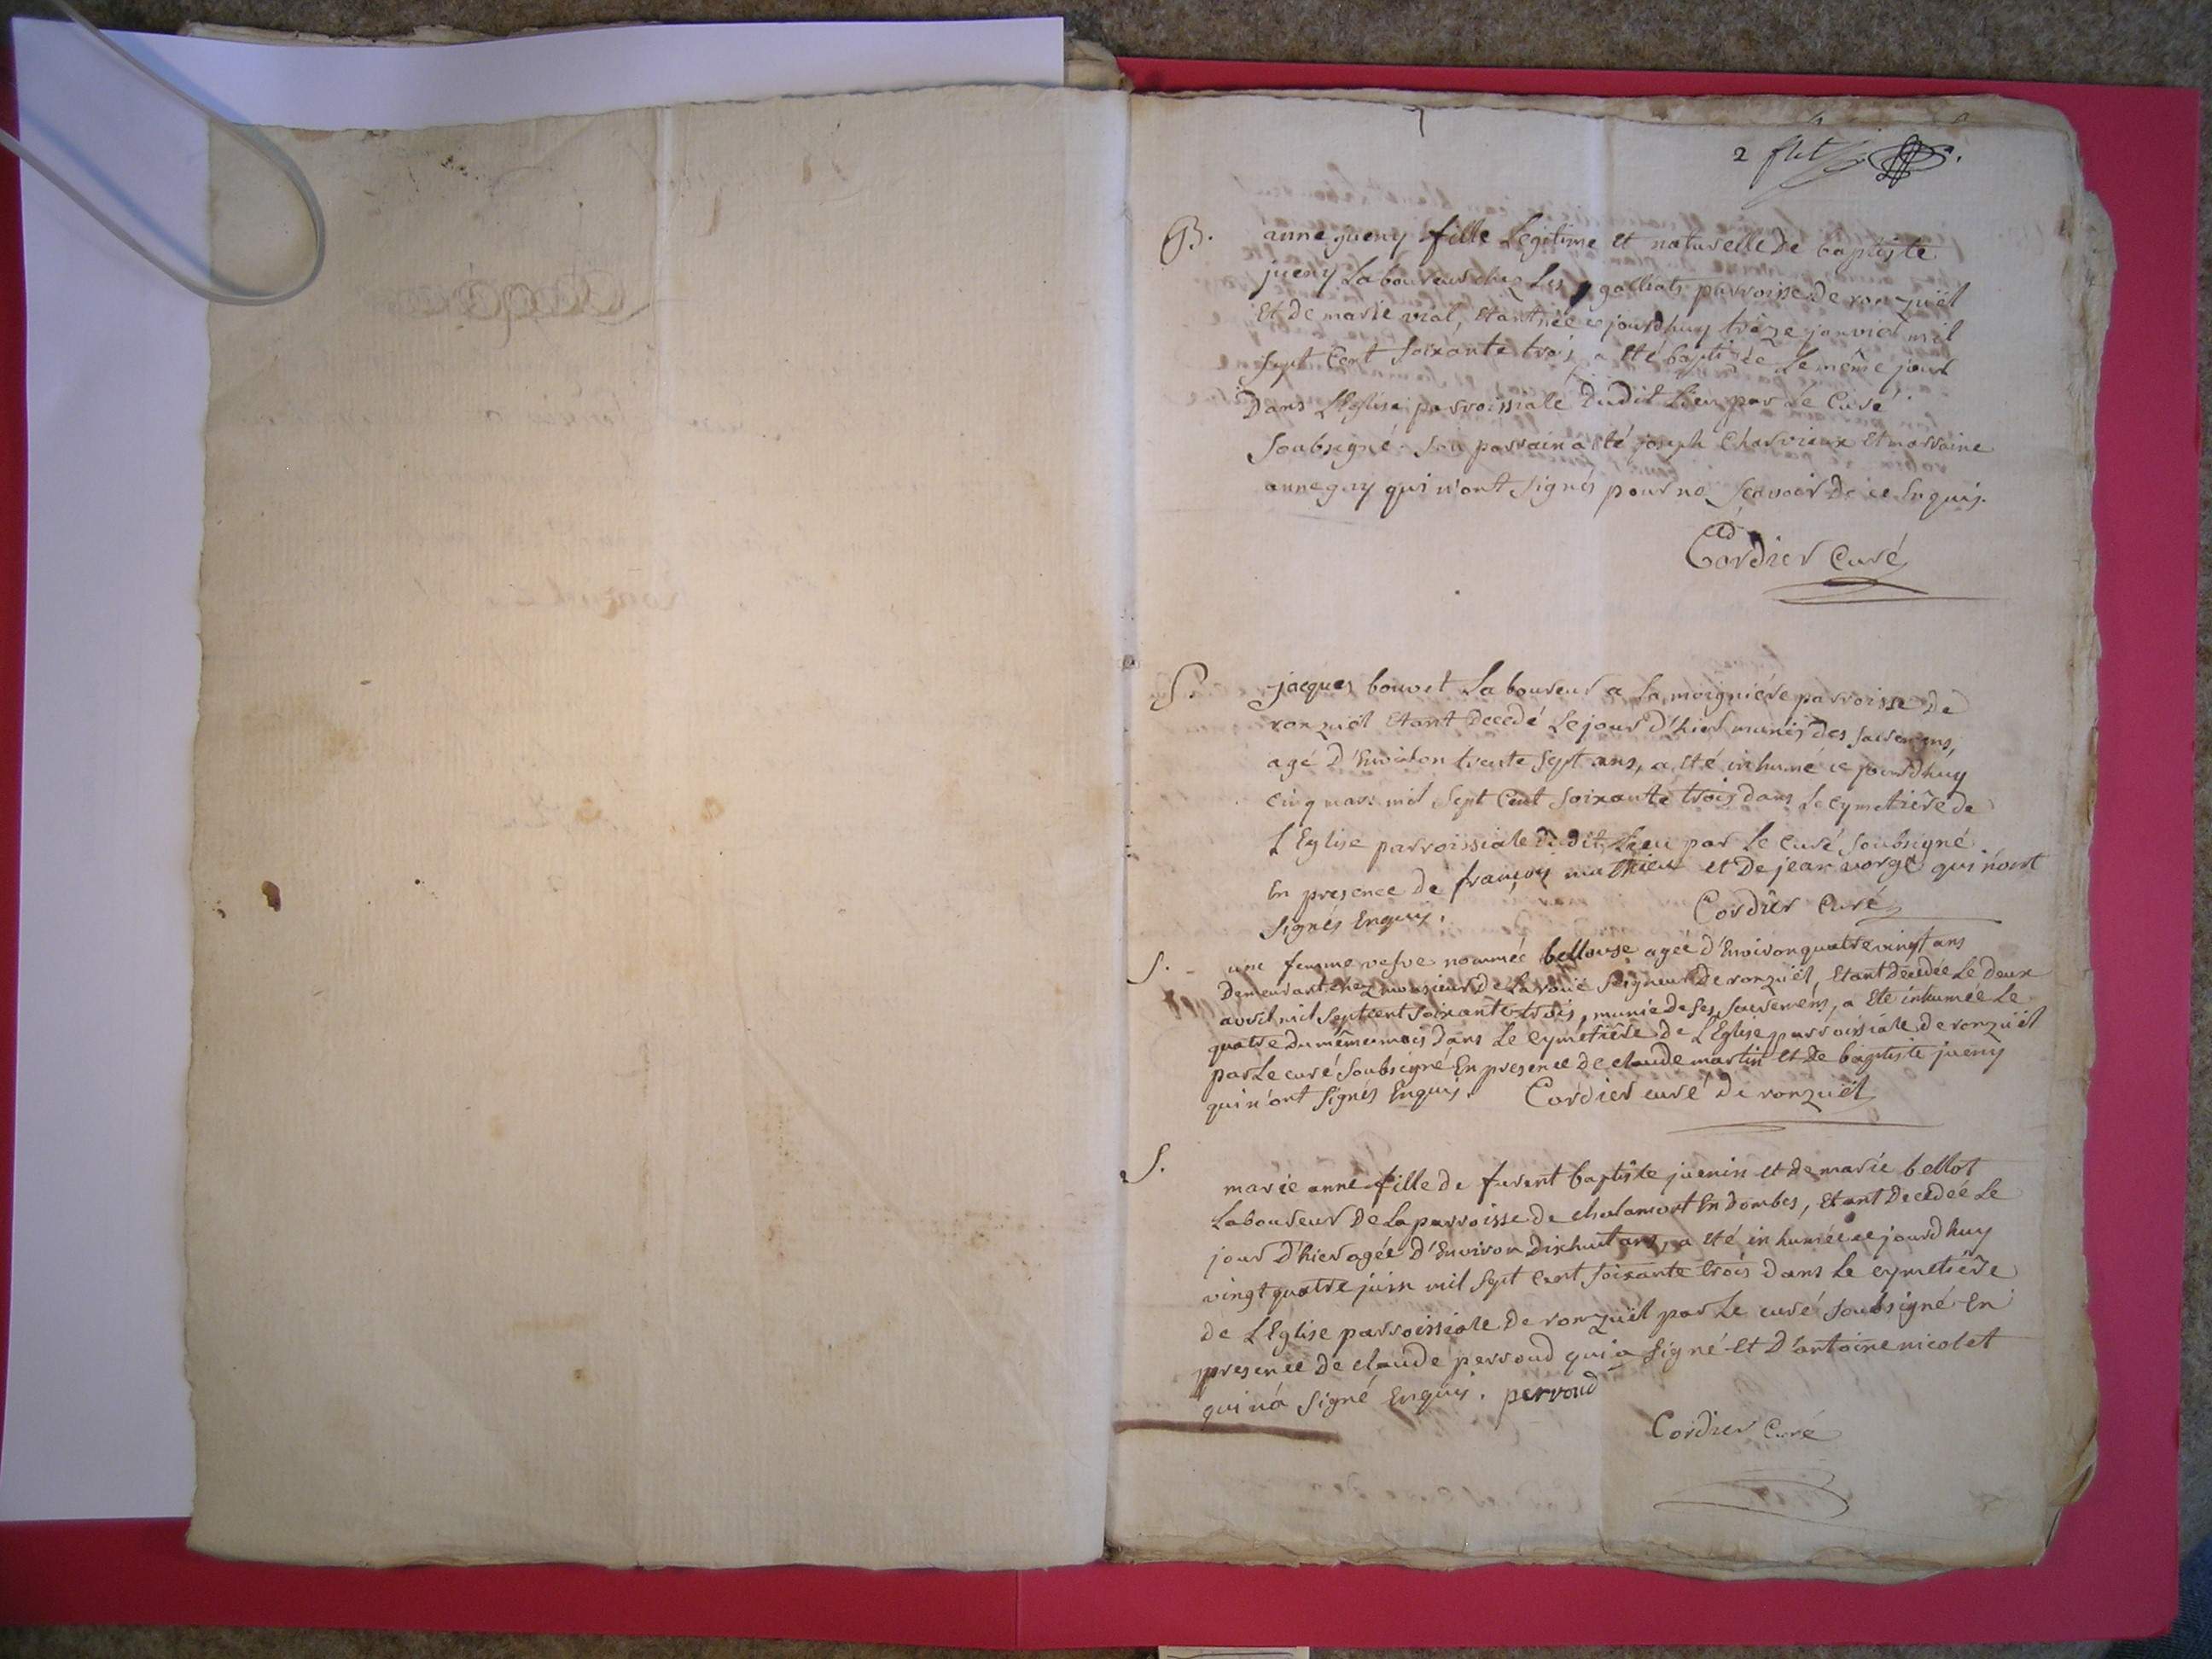 2
B. anne jueny fille Legitime et naturelle De baptiste
jueny Laboureur chez Les galliats parroisse De ronzuël
Et De marie vial, Etant née ce jourdhuy treize janvier mil
Sept Cent Soixante trois a Eté baptisée Le même jour
Dans L'Eglise parroissiale Dudit Lieu par Le Curé
Soubsigné. Son parrain a Eté joseph Charvieux Et marraine
anne guy qui n'ont Signés pour ne Scavoir De ce Enquis.
Cordier Curé
S. jacques bouvet Laboureur a La moigniére parroisse De
ronzuël Etant Decedé Le jour D'hier munis Des Sacremens,
agé D'Environ trente Sept ans, a Eté inhumé ce jourdhuy
Cinq mars mil Sept Cent Soixante trois Dans Le cymetiére De
L'Eglise parroissiale Dudit Lieu par Le Curé Soubsigné
En presence De françois mathieu et De jean vorge qui n'ont
Signés Enquis. Cordier Curé
S. une femme vefve nommée bellouse ageé d'Environ quatre vingt ans
Demeurant chez monsieur De Laroüe Seigneur De ronzuël, Etant Decedée Le Deux
avril mil Sept cent Soixante trois, munie de ses Sacremens, a Eté inhumée Le
quatre Du même mois Dans Le cymetiére De L'Eglise parroissiale De ronzuël
par Le curé Soubsigné En presence De claude martin Et De baptiste jueny
qui n'ont Signés Enquis. Cordier curé De ronzuël
S. marie anne fille De furent baptiste juenin et De marie bellot
Laboureur De La parroisse De chalamont En Dombes, Etant Decedée Le
jour D'hier agée D'Environ Dixhuit ans, a Eté inhumée ce jourdhuy
vingt quatre juin mil Sept Cent Soixante trois Dans Le cymetiére
De L'Eglise parroissiale De ronzuël par Le curé Soubsigné En
presence De claude perroud qui a Signé Et D'antoine nicolet
qui n'a Signé Enquis. perroud
Cordier Curé